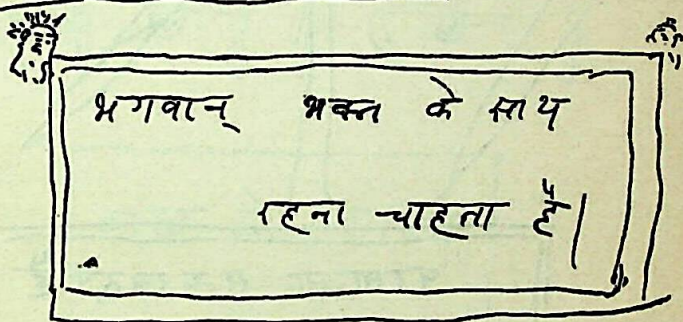 भगवान् भक्त के साथ
रहना चाहता है।